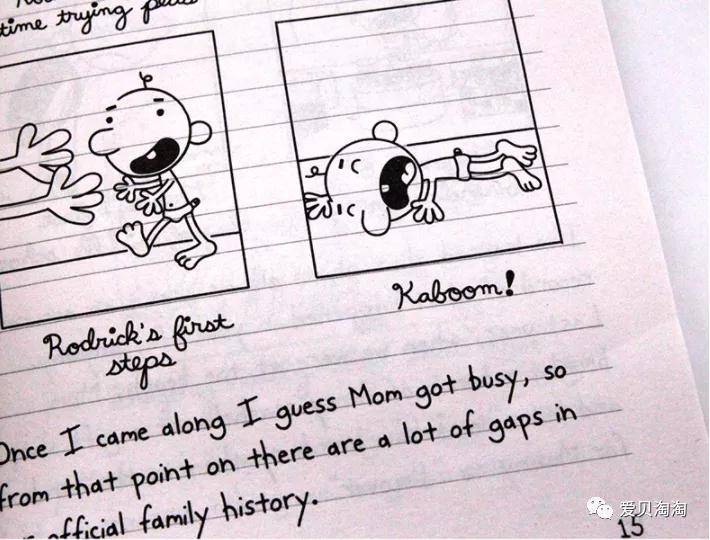 time trying
Rodrick's first
steps
Kaboom!
Once I came along I guess Mom got busy, so
from that point on there are a lot of gaps in
official family history.
15
爱贝淘淘